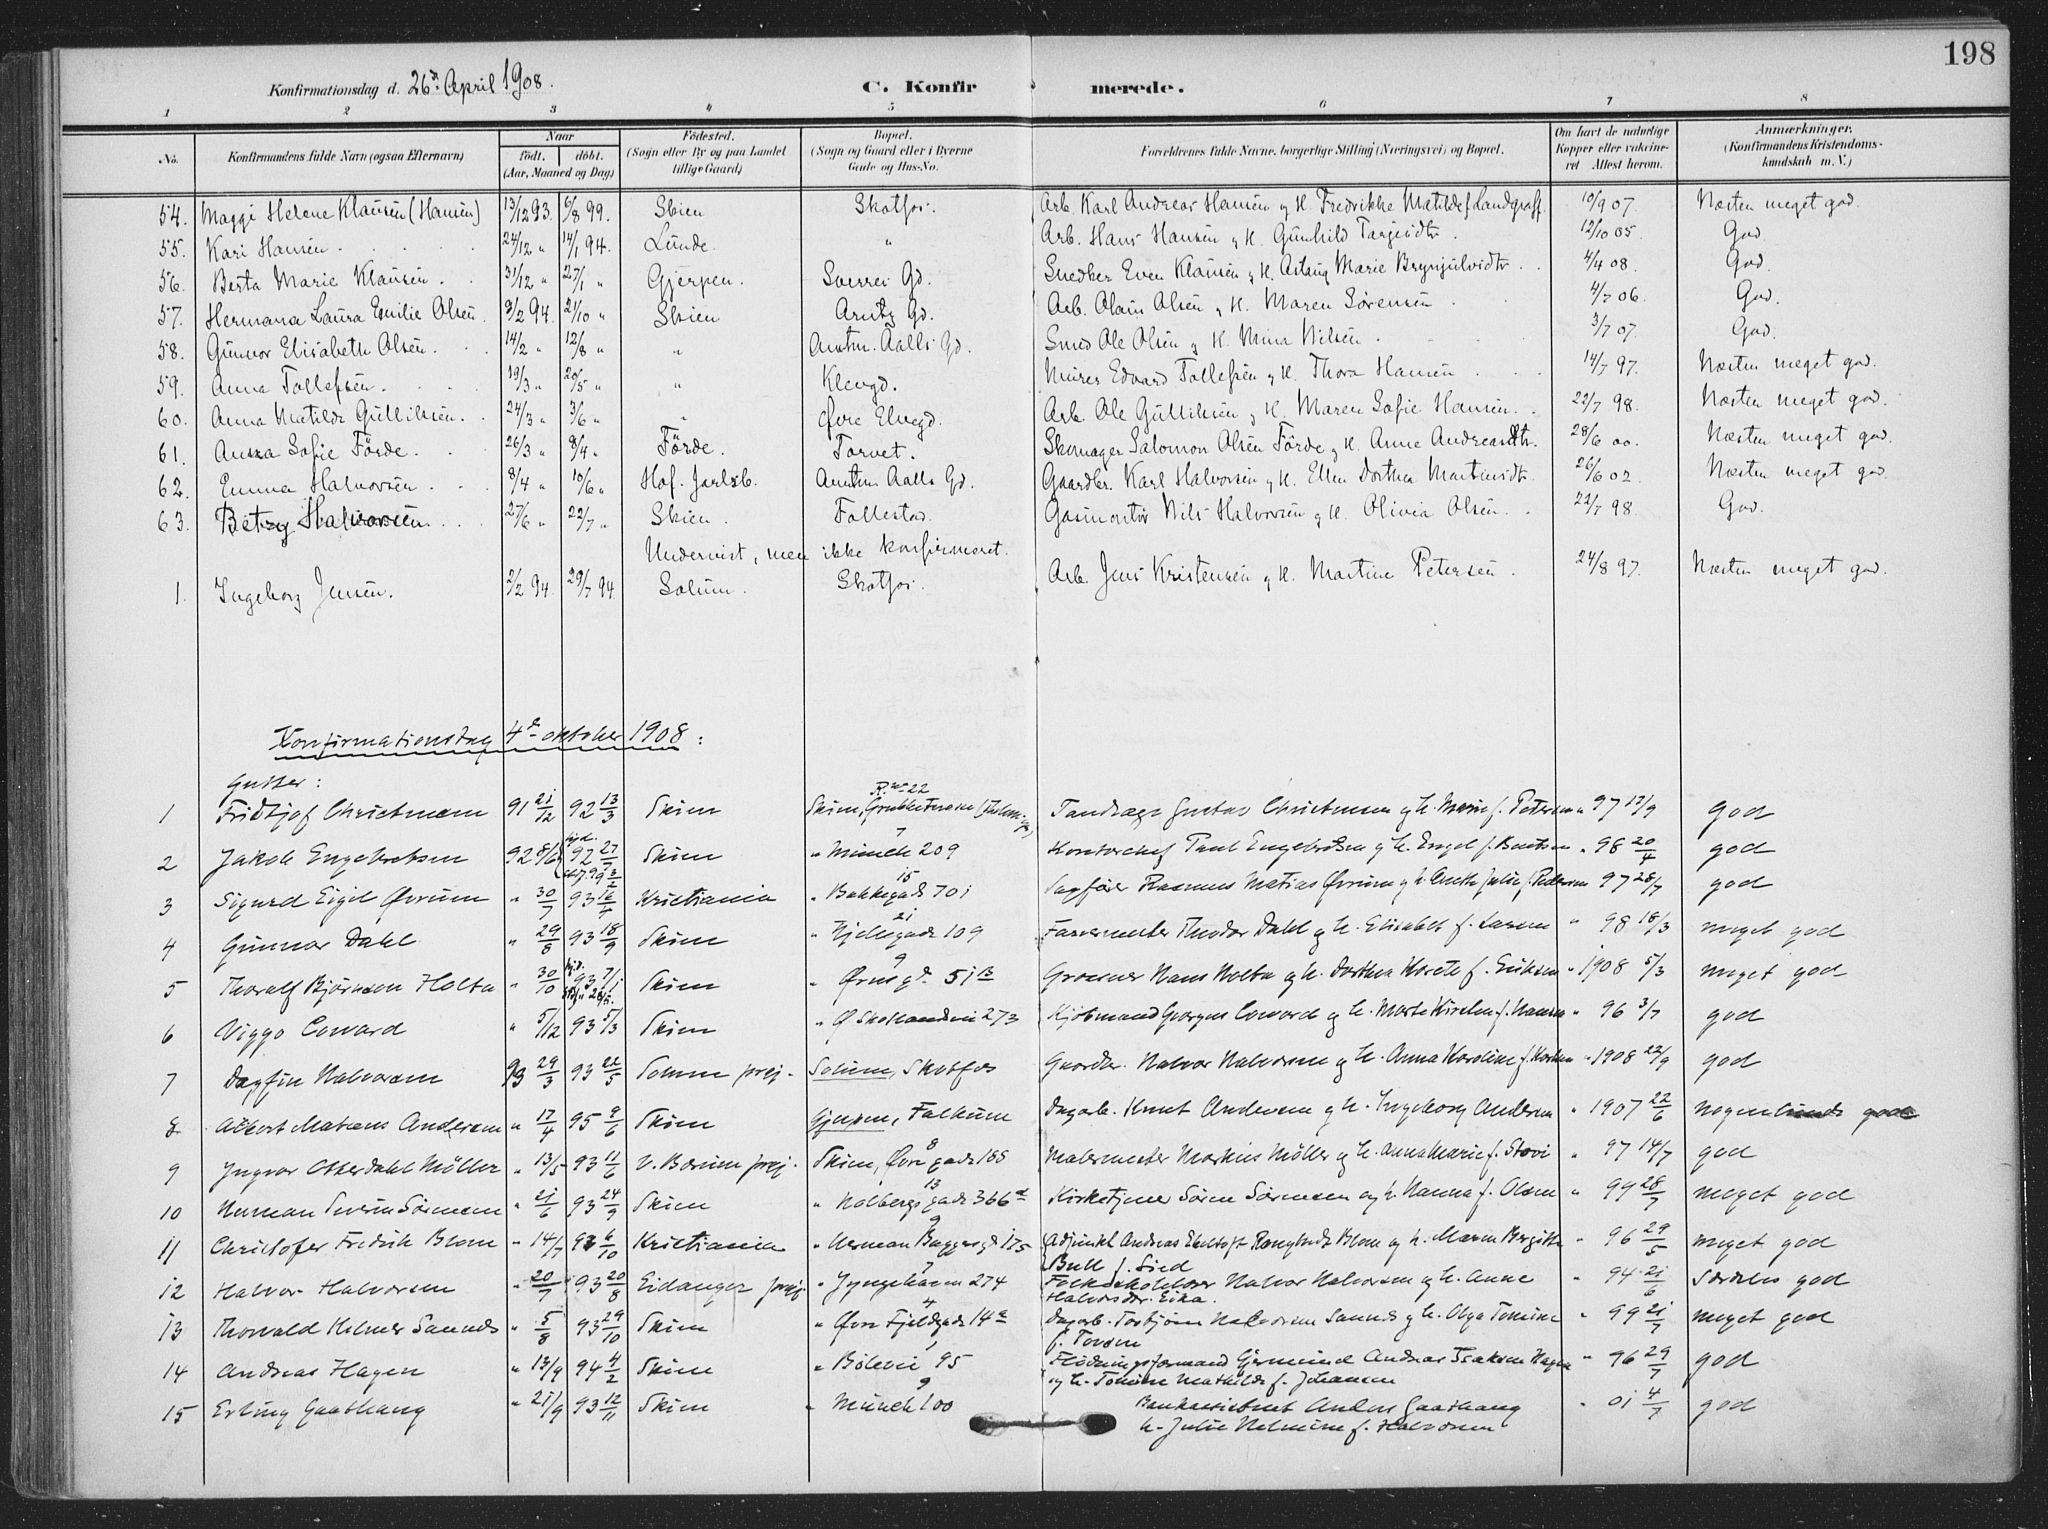 198
Konfirmationsdag d. 26de April 1908.
C. Konfirmerede.
1 2 3 4 5 6 7 8
No. Konfirmandens fulde Navn (ogsaa Efternavn) Naar födt. döbt. (Aar, Maaned og Dag) Födested. (Sogn eller By og paa Landet tillige Gaard) Bopæl. (Sogn og Gaard eller i Byerne Gade og Hus-No. Forældrenes fulde Navne, borgerlige Stilling (Næringsvei) og Bopæl. Om havt de naturlige Kopper eller vakcineret Attest herom. Anmærkninger. (Konfirmandens Kristendomskundskab m. V.)
54. Maggi Helene Klausen (Hansen) 13/12 93. 6/8 99. Skien Skotfos. Arb. Karl Andreas Hansen og H. Fredrikke Matilde f. Landgraff. 10/9 07 Næsten meget god.
55. Kari Hansen 24/12 " 14/1 94. Lunde. " Arb. Hans Hansen og H. Gunhild Targeisdtr. 12/10 05. God
56. Berta Marie Klausen 31/12 " 27/1 " Gjerpen. Sverres Gd. Snedker Even Klausen og H. Aslaug Marie Brynjulvsdtr. 4/4 08. God.
57. Hermana Laura Emilie Olsen 3/2 94. 21/10 " Skien Arntz Gd. Arb. Olaus Olsen og H. Maren Sørensen 4/7 06. God.
58. Gunvor Elisabeth Olsen. 14/2 " 12/8 " " Amtm. Aalls Gd. Smed Ole Olsen og H. Mina Nilsen 3/7 07. God.
59. Anna Tollefsen. 19/3 " 20/5 " " Klevgd. Murer Edvard Tollefsen og H. Thora Hansen 14/7 97. Næsten meget god.
60. Anna Matilde Gulliksen. 24/3 " 3/6 " " Øvre Elvegd. Arb. Ole Gulliksen og H. Maren Sofie Hansen. 22/7 98. Næsten meget god.
61. Anna Sofie Förde. 26/3 " 8/4 " Förde. Torvet. Skomager Salomon Olsen Förde og H. Anne Andreasdtr. 28/6 00. Næsten meget god.
62. Emma Halvorsen 8/4 " 10/6 " Hof. Jarlsb. Amtm Aalls Gd. Gaardbr. Karl Halvorsen og H. Ellen Dorthea Martinsdtr. 26/6 02. Næsten meget god.
63. Betzy Halvorsen. 27/6 " 22/7 " Skien. Follestad. Gasmontør Nils Halvorsen og H. Olivia Olsen. 22/7 98. God.
Undervist, men ikke konfirmeret.
1. Ingeborg Jensen. 2/2 94. 29/7 94. Solum. Skotfos. Arb. Jens Kristensen og H. Martine Petersen. 24/8 97. Næsten meget god.
Konfirmationsdag 4de oktober 1908:
Gutter:
1 Fridtjof Christensen 91 21/12 92 13/3 Skien Skien, R.no 22 Tandlæge Gustav Christensen og h. Marie f. Petersen " 97 13/9 god
2 Jakob Engebretsen 92 8/6 Skien " Munch 209 Kontorchef Paul Engebretsen og h. Engel f. Bentsen " 98 20/4 god
3 Sigurd Eigil Øvrum " 30/7 93 Kristiania " Bakkegade 701 15 Sagfører Rasmus Matias Øvrum og h. Julie f. Pedersen 97 28/7 god
4 Gunnar Dahl " 29/8 93 18/9 Skien " Fjeldgade 109 21 Farvermester Theodor Dahl og h. Elisabet f. Larsen " 98 18/3 meget god
5 Thoralf Bjørnsen Holta " 30/10 93 7/1 Skien " 9 51 13 Hans Holta og h. Dorthea f. Eriksen " 1908 5/3 meget god
6 Viggo Coward " 5/12 93 5/3 Skien " Ø 273 Kjøbmand Georgius Coward og h. f. Hansen " 96 3/7 god
7 Dagfin Halvorsen 93 29/3 93 22/5 Solum prgj. Solum, Skotfos Gaardbr. Halvor Halvorsen og h. Anna Karoline f. " 1908 22/9 god
8 Albert Andersen " 17/4 95 9/6 Skien Gjerpen, Falkum Dagarb. Knut Andersen og h. Ingeborg Andersen " 1907 22/6 nogenlunde god
9 Yngvar Otterdahl Møller " 13/5 93 11/6 V. Bærum prgj. Skien, Øvre gade 185 8 Malermester Markus Møller og h. Anna Marie f. Stovi " 97 14/7 god
10 Herman Severin Sørensen " 21/6 93 24/9 Skien " Holbergs gade 366d 13 Kirketjener Søren Sørensen og h. Hanna f. Olsen " 99 28/7 meget god
11 Christofer Fredrik Blom " 14/7 93 6/10 Kristiania " Herman Baggersgd 175 9 Adjunkt Andreas Blom og h. Maren Bergitte " 96 29/5 meget god
Bull f. Lied
12 Halvor Halvorsen " 20/7 93 20/8 Eidanger prgj. " 274 7 Folkeskolelærer Halvor Halvorsen og h. Anne " 94 21/6 Særdeles god
Halvorsdtr. Eika.
13 Thorvald Hilmer Saunds " 5/8 93 29/10 Skien " Øvre Fjeldgade 14a 4 Dagarb. Torbjørn Halvorsen og h. Olga Tomine " 99 21/7 meget god
14 Andreas Hagen " 13/9 94 4/2 Skien " Bølevei 95 1 Andreas Isaksen Hagen " 96 29/7 god
og h. Tomine Mathilde f. Johansen
15 Erling Gaathaug " 21/9 93 12/11 Skien " Munch 100 9 Bankassistent Anders Gaathaug " 01 4/7 god
h. Julie Helmine f. Halvorsen